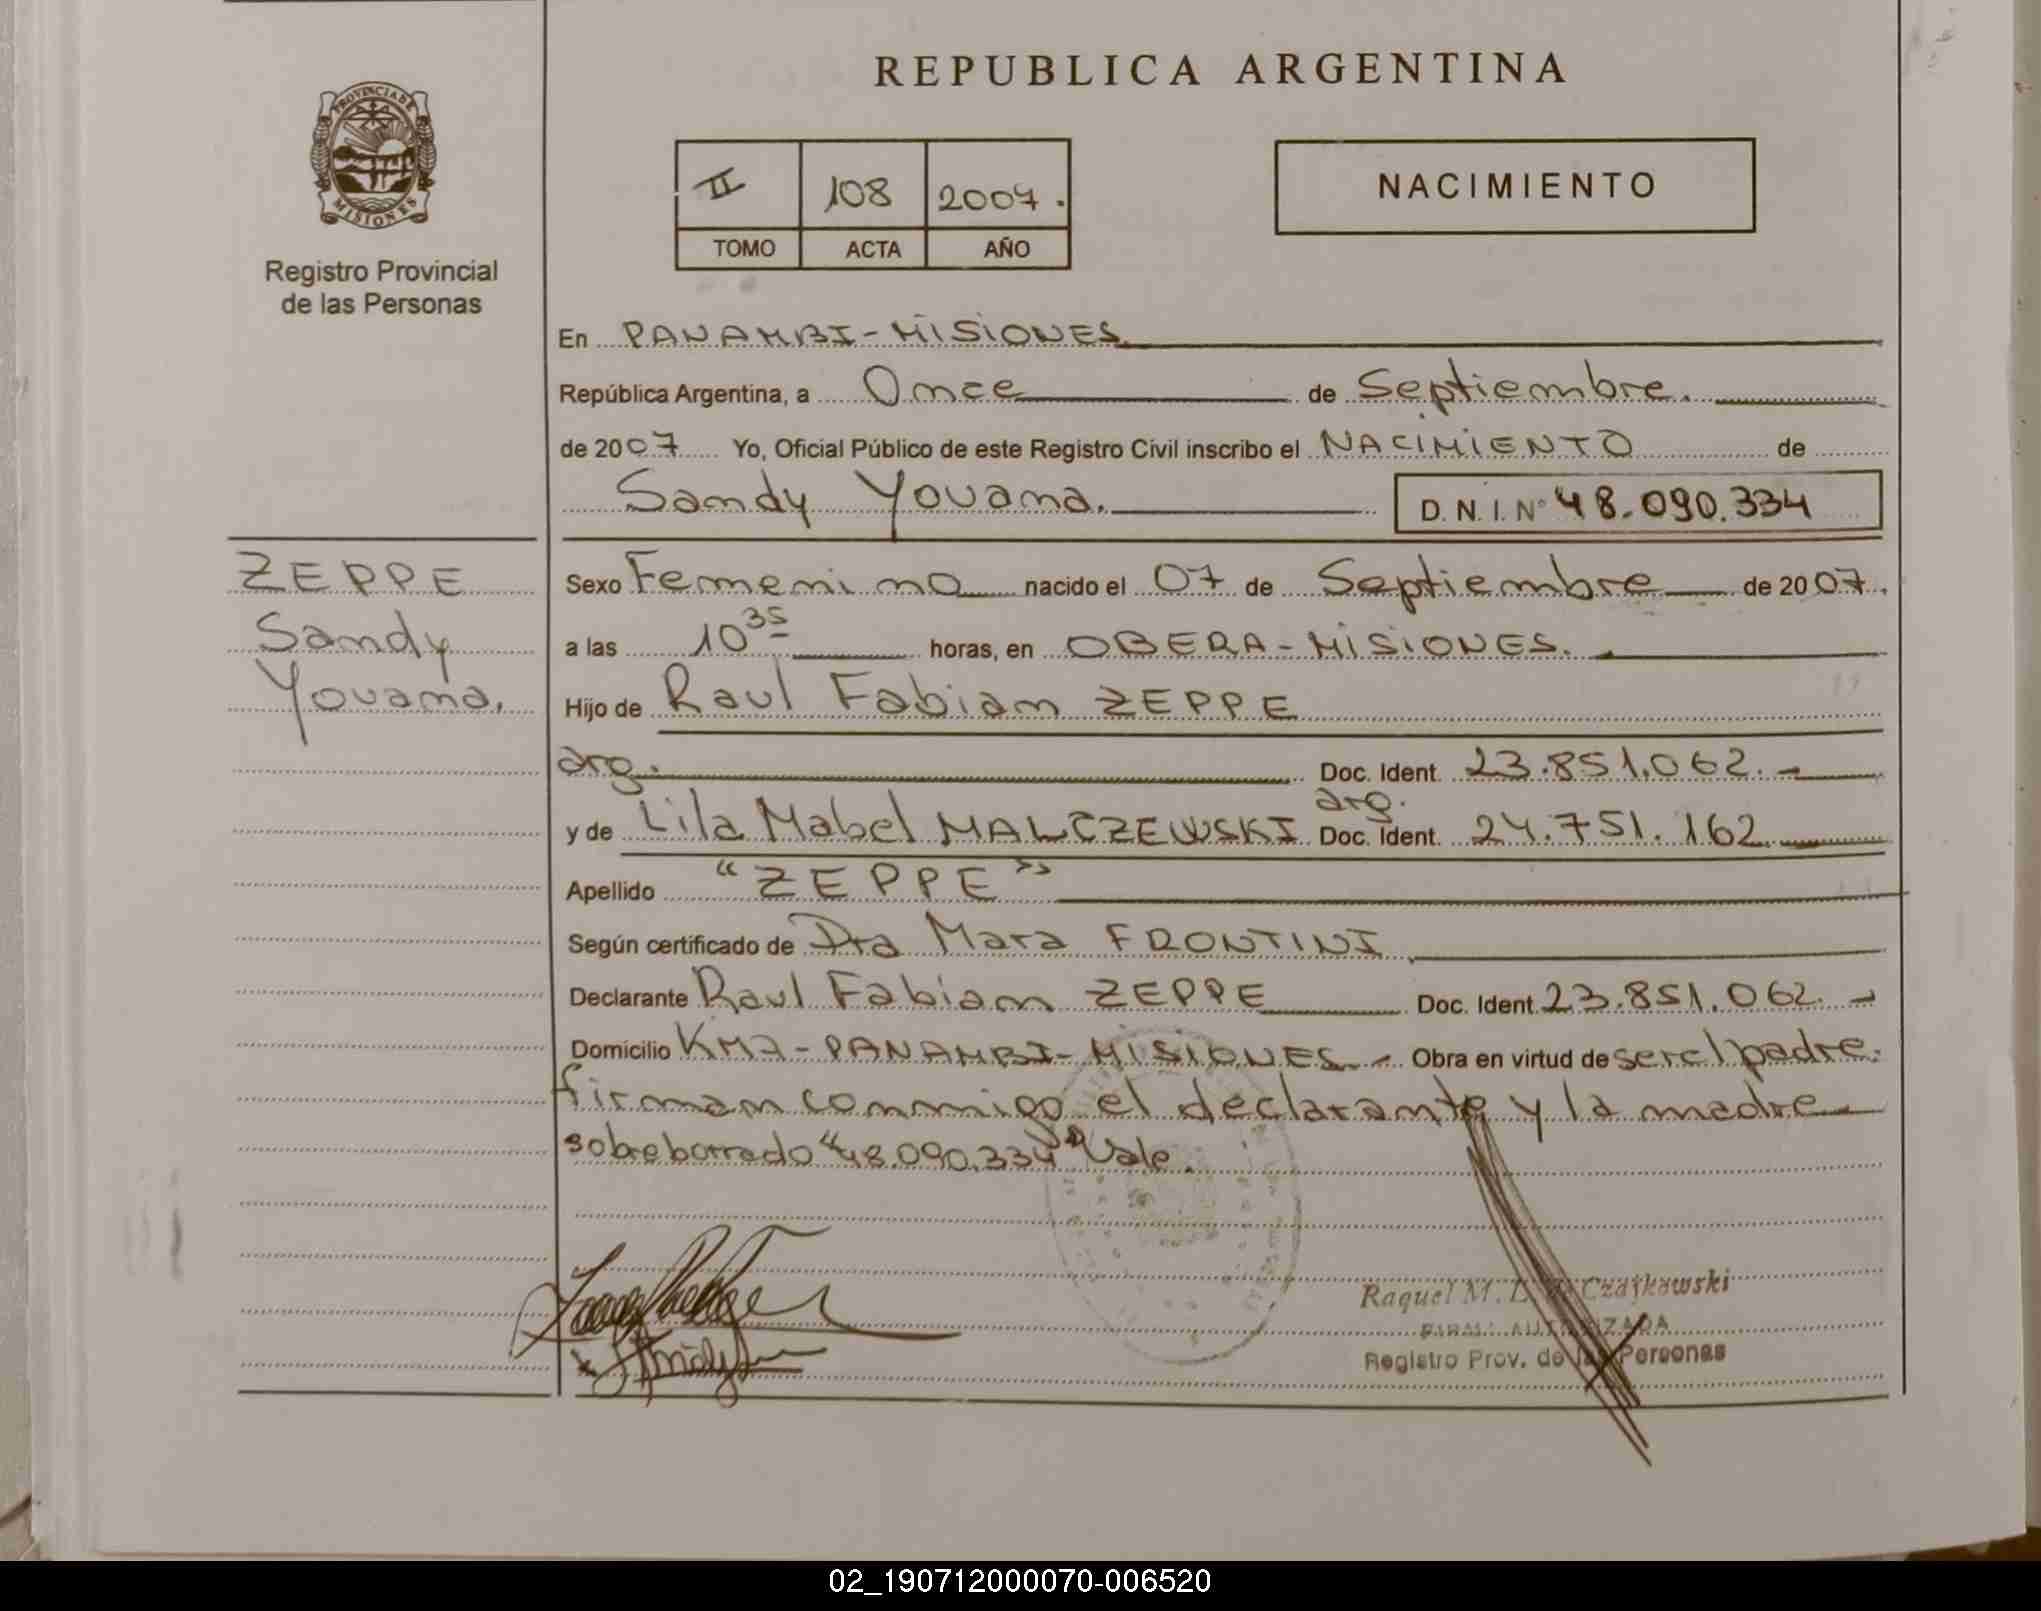 REPUBLICA ARGENTINA
PROVINCIA DE
MISIONES
Registro Provincial
de las Personas
II 108 2007.
TOMO ACTA AÑO
NACIMIENTO
En PANAMBI-MISIONES.
República Argentina, a Once de Septiembre.
de 2007 Yo, Oficial Público de este Registro Civil inscribo el NACIMIENTO de
Sandy Yovana. D.N.I. Nº 48.090.334
ZEPPE
Sandy
Yovana.
Sexo Femenino nacido el 07 de Septiembre de 2007.
a las 10 35 horas, en OBERA-MISIONES.
Hijo de Raul Fabian ZEPPE
arg. Doc. Ident. 23.851.062.-
arg.
y de Lila Mabel MALCZEWSKI Doc. Ident. 24.751.162
Apellido "ZEPPE"
Según certificado de Dra Mara FRONTINI
Declarante Raul Fabian ZEPPE Doc. Ident. 23.851.062.-
Domicilio - PANAMBI-MISIONES.- Obra en virtud de ser el padre.
firman conmigo el declarante y la madre
sobreborrado "48.090.334" Vale.
Raquel M. Czajkowski
AUTORIZADA
Registro Prov. de las Personas
02_190712000070-006520